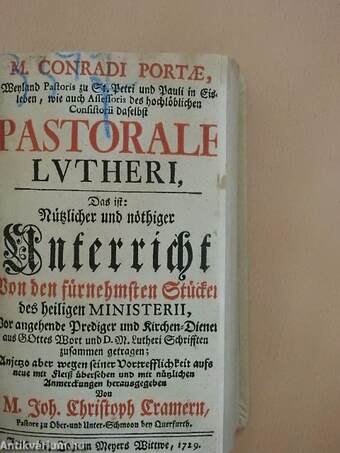 M. CONRADI PORTÆ,
Weyland Pastoris zu St. Petri und Pauli in Eis-
leben, wie auch Assessoris des hochlöblichen
Consistorii daselbst
PASTORALE
LVTHERI,
Das ist:
Nützlicher und nöthiger
Unterricht
Von den fürnehmsten Stücken
des heiligen MINISTERII,
Vor angehende Prediger und Kirchen-Diener
aus GOttes Wort und D. M. Lutheri Schrifften
zusammen getragen;
Anjetzo aber wegen seiner Vortrefflichkeit aufs
neue mit Fleiß übersehen und mit nützlichen
Anmerckungen herausgegeben
Von
M. Joh. Christoph Cramern,
Pastore zu Ober-und Unter-Schmoon bey Querfurth.
Meyers Wittwe, 1729.
Antikvarium.hu